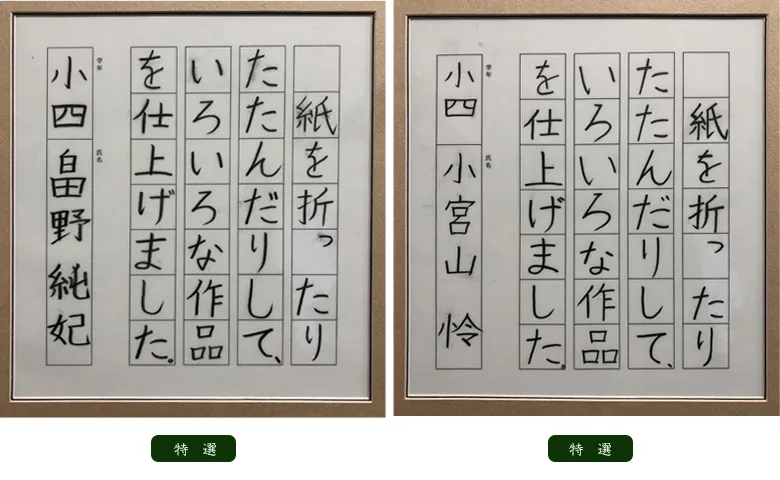 紙を折ったり
たたんだりして、
いろいろな作品
を仕上げました。
学年
小四
氏名
畠野 純妃
特選
紙を折ったり
たたんだりして、
いろいろな作品
を仕上げました。
学年
小四
氏名
小宮山 怜
特選